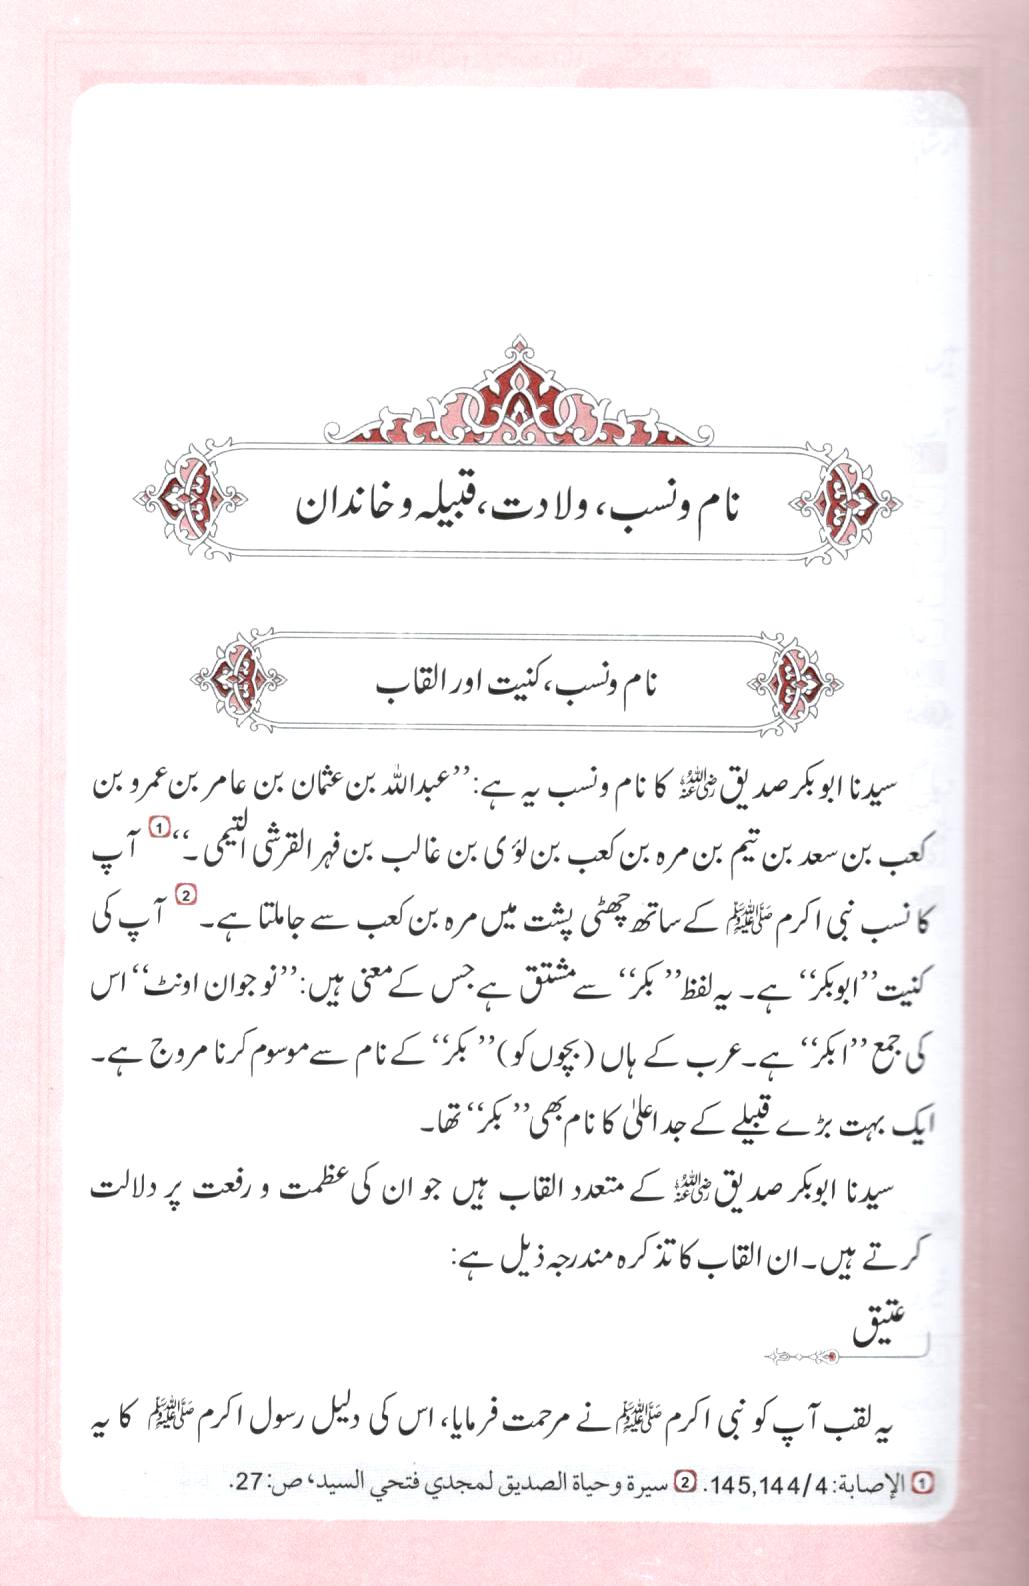 نام ونسب، ولادت، قبیلہ و خاندان
نام ونسب، کنیت اور القاب
سیدنا ابوبکر صدیق رضی اللہ عنہ کا نام ونسب یہ ہے: ’’عبداللہ بن عثمان بن عامر بن عمرو بن
کعب بن سعد بن تیم بن مرہ بن کعب بن لؤی بن غالب بن فہر القرشی التیمی۔‘‘ 1 آپ
کا نسب نبی اکرم ﷺ کے ساتھ چھٹی پشت میں مرہ بن کعب سے جا ملتا ہے۔ 2 آپ کی
کنیت ’’ابوبکر‘‘ ہے۔ یہ لفظ ’’بکر‘‘ سے مشتق ہے جس کے معنی ہیں: ’’نوجوان اونٹ‘‘ اس
کی جمع ’’ابکر‘‘ ہے۔ عرب کے ہاں (بچوں کو) ’’بکر‘‘ کے نام سے موسوم کرنا مروج ہے۔
ایک بہت بڑے قبیلے کے جد اعلیٰ کا نام بھی ’’بکر‘‘ تھا۔
سیدنا ابوبکر صدیق رضی اللہ عنہ کے متعدد القاب ہیں جو ان کی عظمت و رفعت پر دلالت
کرتے ہیں۔ ان القاب کا تذکرہ مندرجہ ذیل ہے:
عتیق
یہ لقب آپ کو نبی اکرم ﷺ نے مرحمت فرمایا، اس کی دلیل رسول اکرم ﷺ کا یہ
1 الإصابة: 145,144/4. 2 سيرة وحياة الصديق لمجدي فتحي السيد، ص: 27.